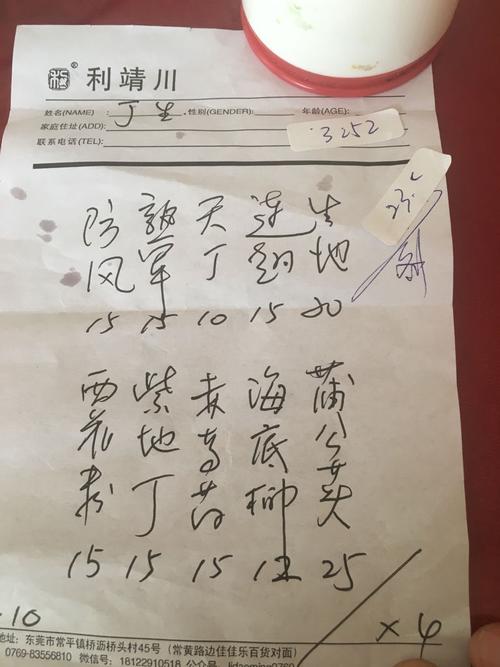 利靖川
姓名(NAME) : 丁生 .性别(GENDER): 年龄(AGE):
家庭住址(ADD):
联系电话(TEL):
3252
生地 20
连翘 15
天丁 10
熟军 15
防风 15
蒲公英 25
海底柳 12
15
紫地丁 15
花粉 15
×4
地址: 东莞市常平镇桥沥桥头村45号 (常黄路边佳佳乐百货对面)
0769-83556810 微信号: 18122910518 公众号: